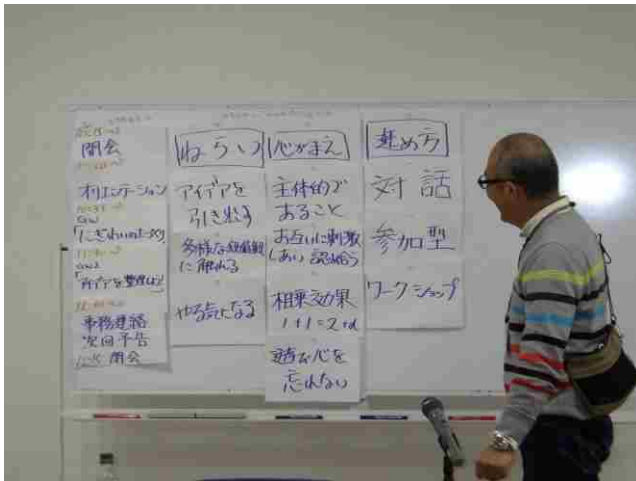 開会
オリエンテーション
GW1
GW2
事務連絡
次回予告
閉会
ねらい
アイデアを
引き出す
多様な価値観
に触れる
やる気になる
心がまえ
主体的で
あること
お互いに刺激
しあい 認め合う
相乗効果
1+1=2+α
遊び心を
忘れない
進め方
対話
参加型
ワークショップ